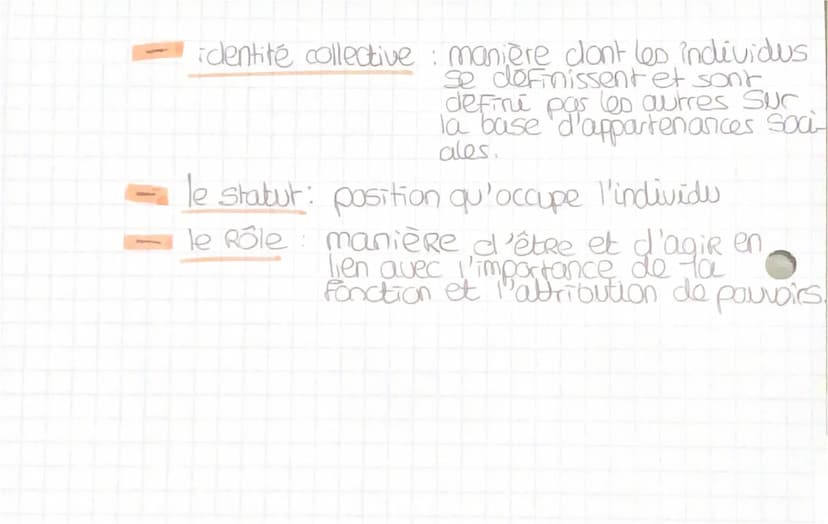 - identité collective : manière dont les individus
se définissent et sont
défini par les autres sur
la base d'appartenances soci-
ales.
- le statut : position qu'occupe l'individu
- le Rôle : manière d'être et d'agir en
lien avec l'importance de la
fonction et l'attribution de pouvoirs.